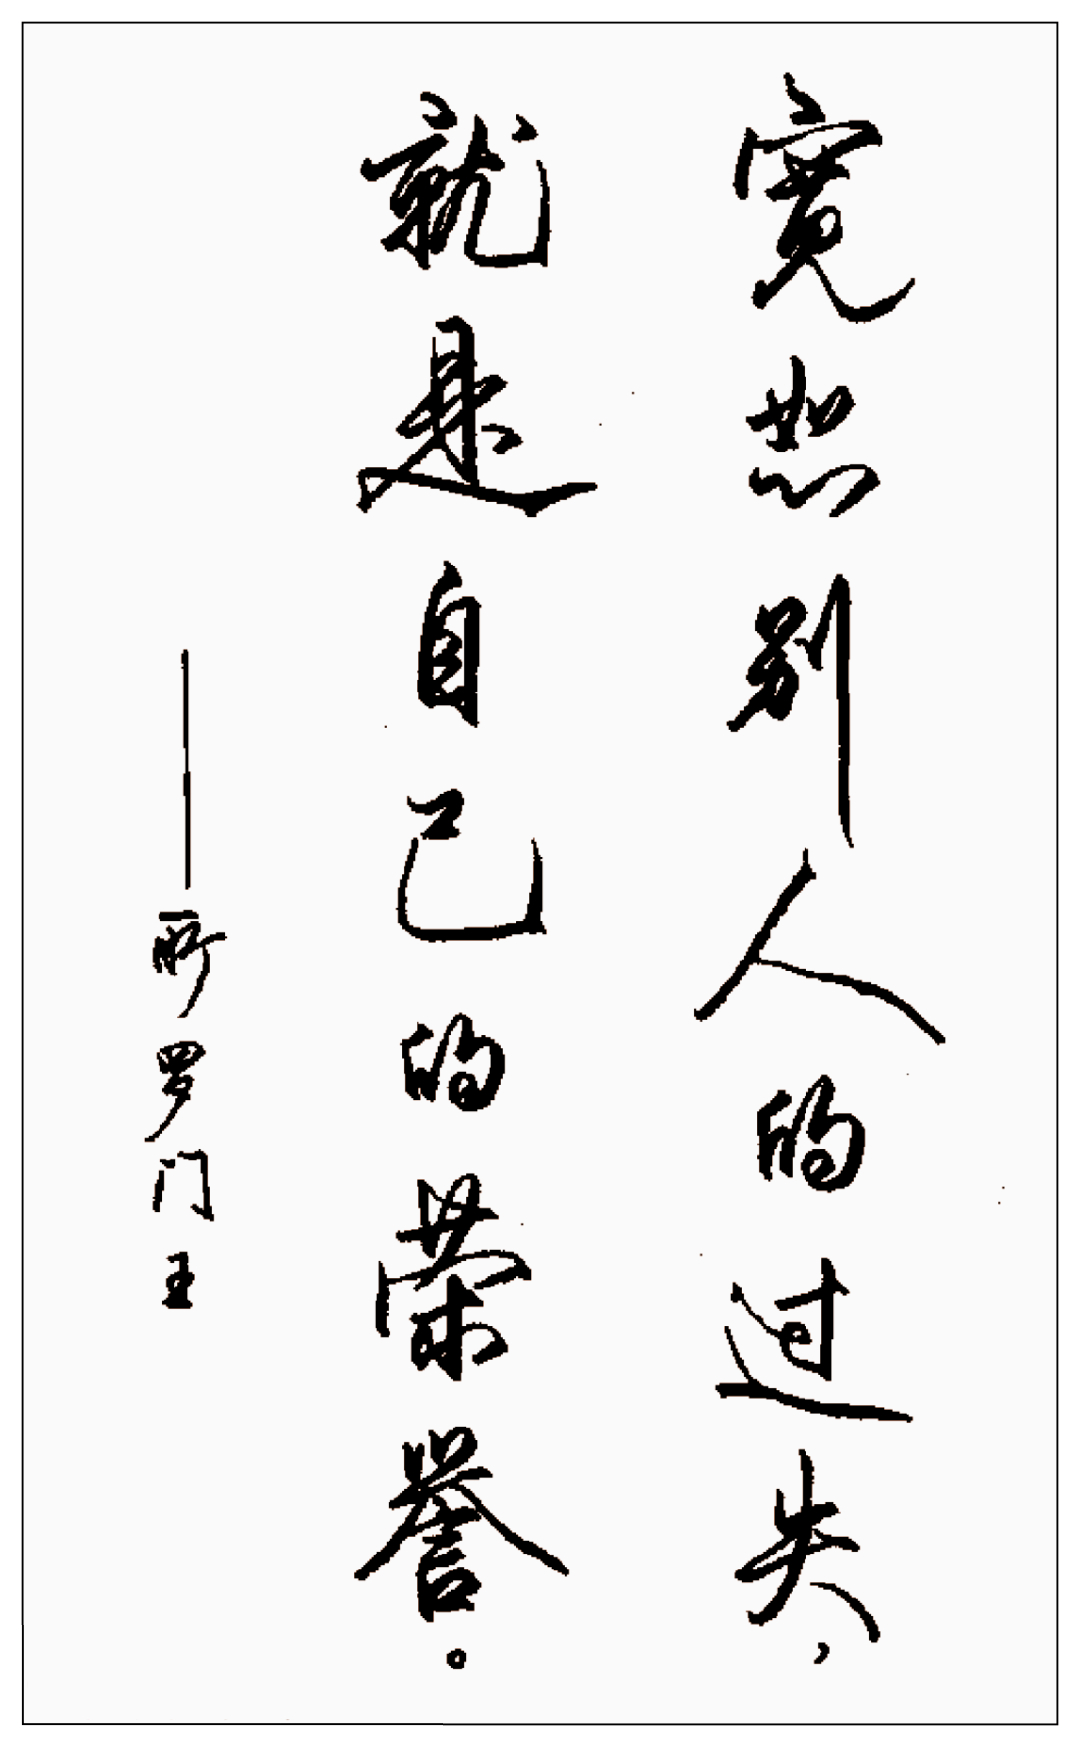 宽恕别人的过失，
就是自己的荣誉。
——所罗门王